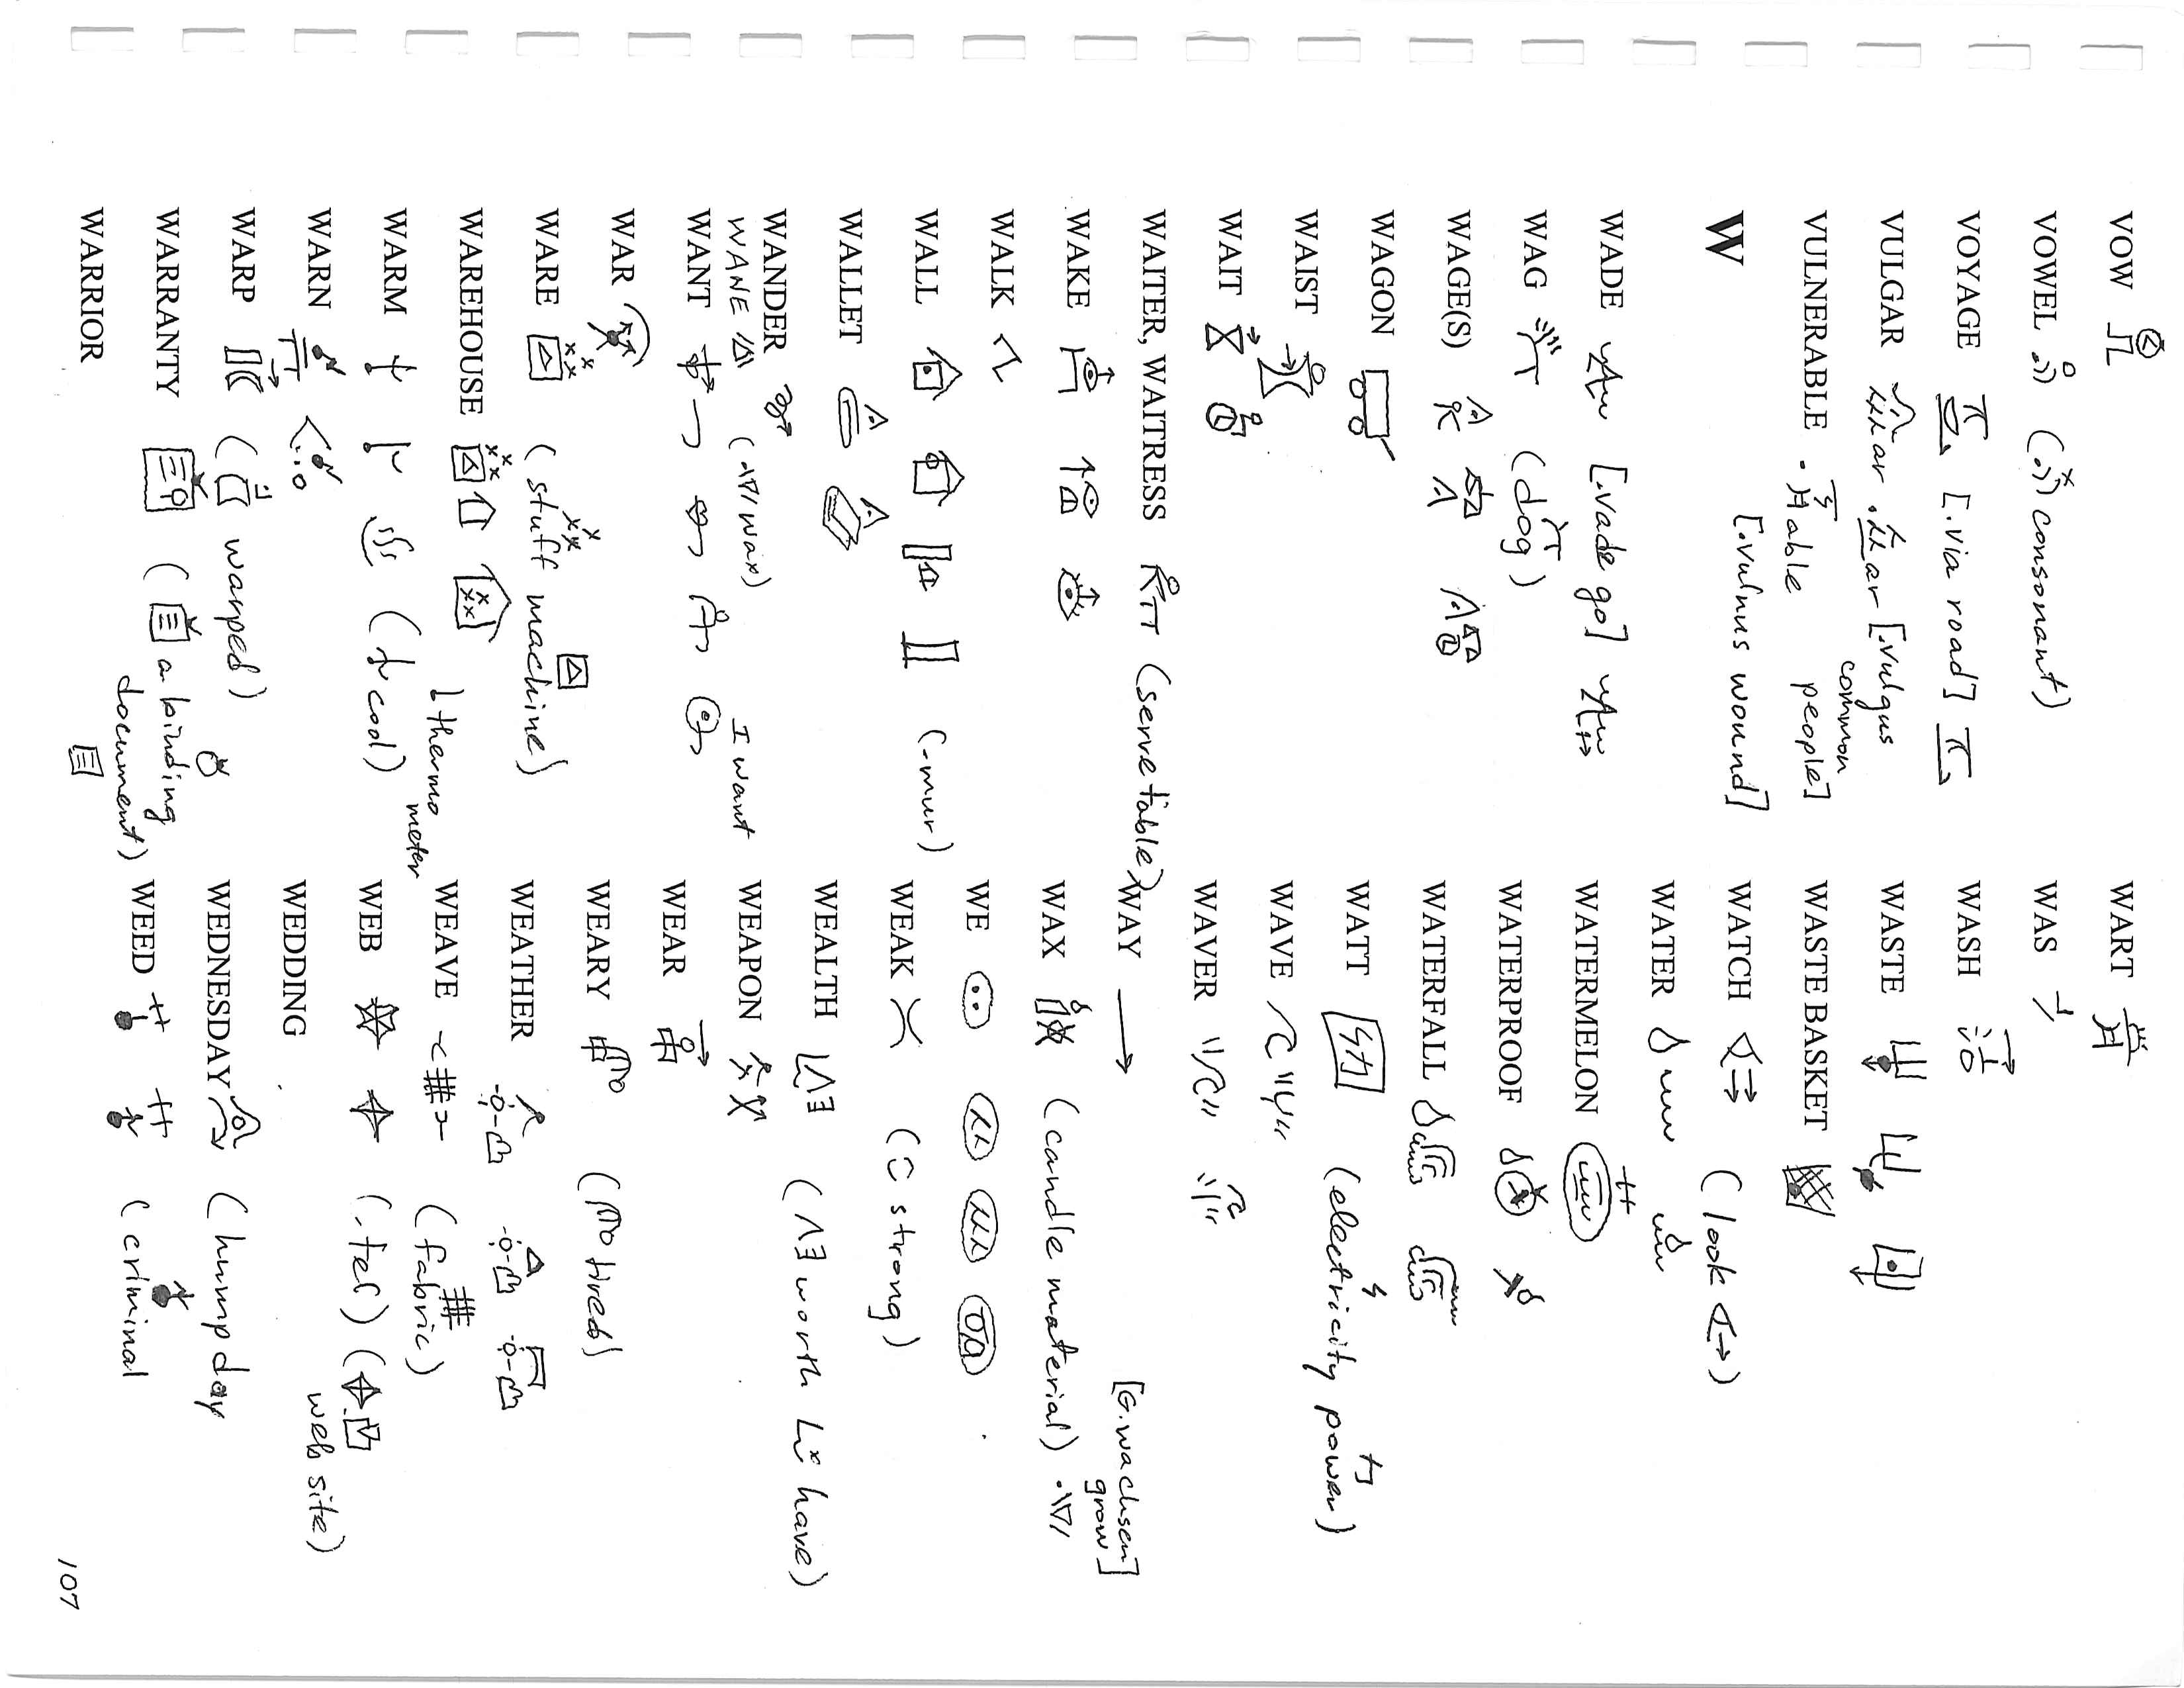 VOW
VOWEL (consonant)
VOYAGE [.via road]
VULGAR ar . ar [.vulgus
common
people]
VULNERABLE . able
[.vulnus wound]
W
WADE [.vade go]
WAG (dog)
WAGE(S)
WAGON
WAIST
WAIT
WAITER, WAITRESS (serve table)
WAKE
WALK
WALL (.mur)
WALLET
WANDER
WANE (wax)
WANT I want
WAR
WARE (stuff machine)
WAREHOUSE
thermo
meter
WARM (cool)
WARN
WARP (warped)
WARRANTY (a binding
document)
WARRIOR
WART
WAS
WASH
WASTE
WASTE BASKET
WATCH (look)
WATER
WATERMELON
WATERPROOF
WATERFALL
WATT (electricity power)
WAVE
WAVER
WAY [G.wachsen
grow]
WAX (candle material)
WE
WEAK (strong)
WEALTH (worth have)
WEAPON
WEAR
WEARY (tired)
WEATHER
WEAVE (fabric)
WEB (.tel) (
web site)
WEDDING
WEDNESDAY (hump day
WEED (criminal
107